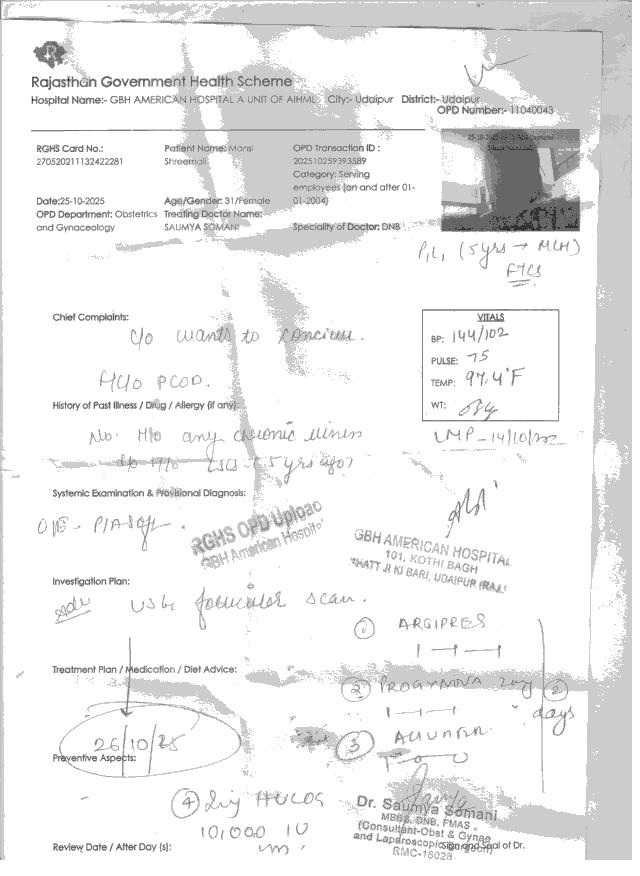 Rajasthan Government Health Scheme
Hospital Name:- GBH AMERICAN HOSPITAL A UNIT OF AIHML City:- Udaipur District:- Udaipur
OPD Number:- 11040043
RGHS Card No.: Patient Name: Mansi OPD Transaction ID :
270520211132422281 Shreemali 202510259393589
Category: Serving
employees (on and after 01-
Date:25-10-2025 Age/Gender: 31/Female 01-2004)
OPD Department: Obstetrics Treating Doctor Name:
and Gynaceology SAUMYA SOMANI Speciality of Doctor: DNB
P1L1 (5yrs → MCH)
FTCS
Chief Complaints:
c/o wants to conceive.
H/O PCOD.
VITALS
BP: 144/102
PULSE: 75
TEMP: 97.4°F
WT:
History of Past Illness / Drug / Allergy (if any):
No. H/o any chronic illness
H/o 5 yrs ago
LMP - 14/10/202
Systemic Examination & Provisional Diagnosis:
O/E - P/A Soft.
RGHS OPD Upload
GBH American Hospital
GBH AMERICAN HOSPITAL
101, KOTHI BAGH
BHATT JI KI BARI, UDAIPUR (RAJ.)
Investigation Plan:
Adv USG follicular scan.
① ARGIPRES
Treatment Plan / Medication / Diet Advice:
② PROGYNNA 2mg
② days
26/10/25
③
Preventive Aspects:
④ Inj HUCOG
10,000 IU
Dr. Saumya Somani
MBBS, DNB, FMAS
(Consultant-Obst & Gynae
and Laparoscopic Surgeon)
Sign and Seal of Dr.
RMC-18028
Review Date / After Day (s):